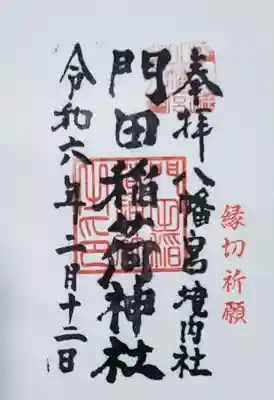 縁切祈願
奉拝 八幡宮境内社
門田稲荷神社
令和六年二月十二日